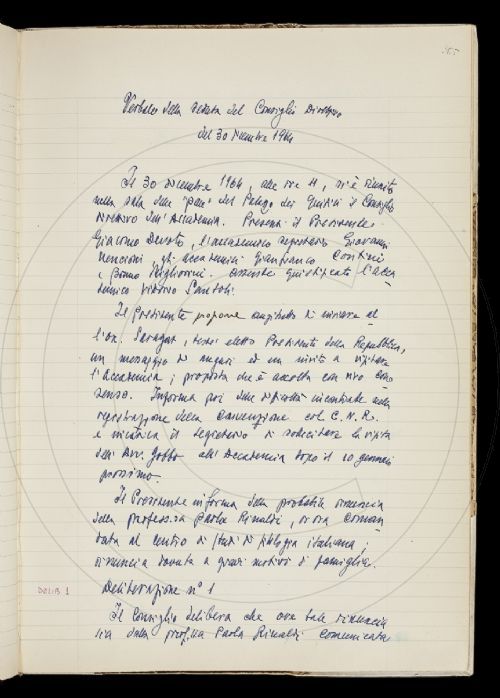 365
Verbale della seduta del Consiglio Direttivo
del 30 dicembre 1964
Il 30 dicembre 1964, alle ore 11, si è riunito
nella sala delle "pale" del Palagio dei Giudici il Consiglio
Direttivo dell'Accademia. Presenti il Presidente
Giacomo Devoto, l'accademico segretario Giovanni
Nencioni, gli accademici Gianfranco Contini
e Bruno Migliorini. Assente giustificato l'acca
demico Vittorio Santoli.
Il Presidente propone anzitutto di inviare al
l'on. Saragat, testé eletto Presidente della Repubblica,
un messaggio di auguri ed un invito a visitare
l'Accademia; proposta che è accolta con vivo con
senso. Informa poi delle difficoltà incontrate nella
registrazione della Convenzione col C.N.R.
e incarica il Segretario di sollecitare la visita
dell'Avv. Gobbo all'Accademia dopo il 10 gennaio
prossimo.
Il Presidente informa della probabile rinuncia
della professa Paola Rinaldi, or ora coman
data al Centro di studi di filologia italiana;
rinuncia dovuta a gravi motivi di famiglia.
DELIB 1
Deliberazione n° 1
Il Consiglio delibera che ove tale rinuncia
sia dalla prof.ssa Paola Rinaldi comunicata